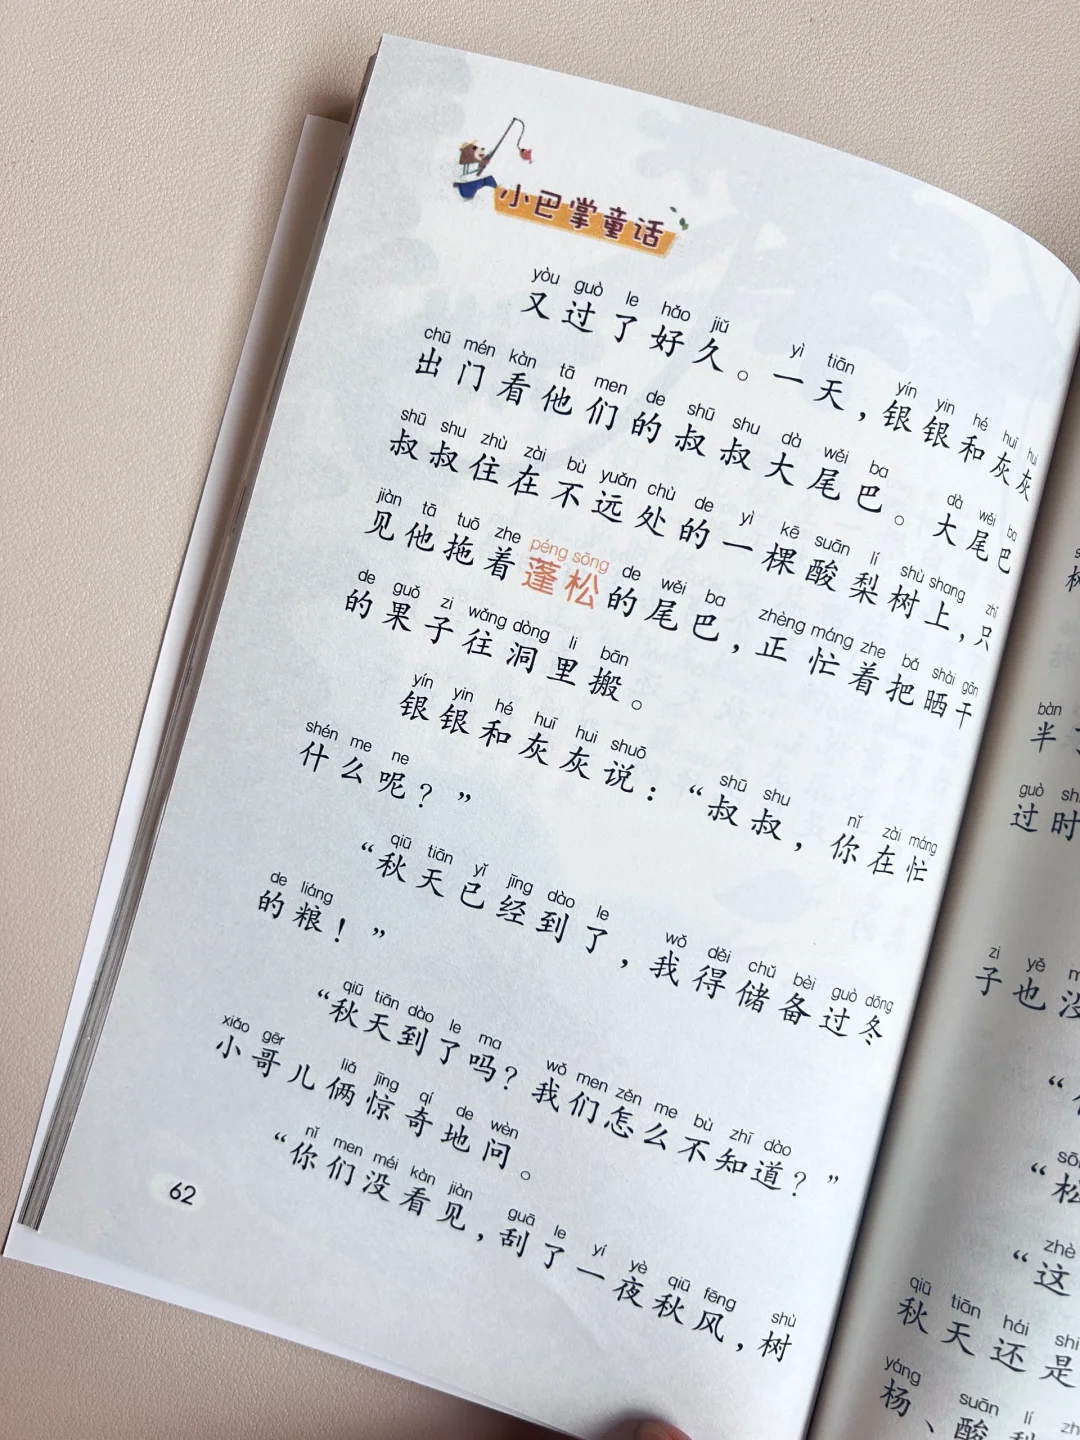 小巴掌童话
yòu guò le hǎo jiǔ yì tiān yín yin hé huī hui
又过了好久。一天，银银和灰灰
chū mén kàn tā men de shū shu dà wěi ba dà wěi ba
出门看他们的叔叔大尾巴。大尾巴
shū shu zhù zài bù yuǎn chù de yì kē suān lí shù shang zhǐ
叔叔住在不远处的一棵酸梨树上，只
jiàn tā tuō zhe péng sōng de wěi ba zhèng máng zhe bǎ shài gān
见他拖着蓬松的尾巴，正忙着把晒干
de guǒ zi wǎng dòng li bān
的果子往洞里搬。
yín yin hé huī hui shuō shū shu nǐ zài máng
银银和灰灰说：“叔叔，你在忙
shén me ne
什么呢？”
qiū tiān yǐ jīng dào le wǒ děi chǔ bèi guò dōng
“秋天已经到了，我得储备过冬
de liáng
的粮！”
qiū tiān dào le ma wǒ men zěn me bù zhī dào
“秋天到了吗？我们怎么不知道？”
xiǎo gēr liǎ jīng qí de wèn
小哥儿俩惊奇地问。
nǐ men méi kàn jiàn guā le yí yè qiū fēng shù
“你们没看见，刮了一夜秋风，树
62
bàn
半
guò shí
过时
zi yě
子也没
“松
zhè
“这
qiū tiān hái shi
秋天还是
yáng suān lí
杨、酸梨